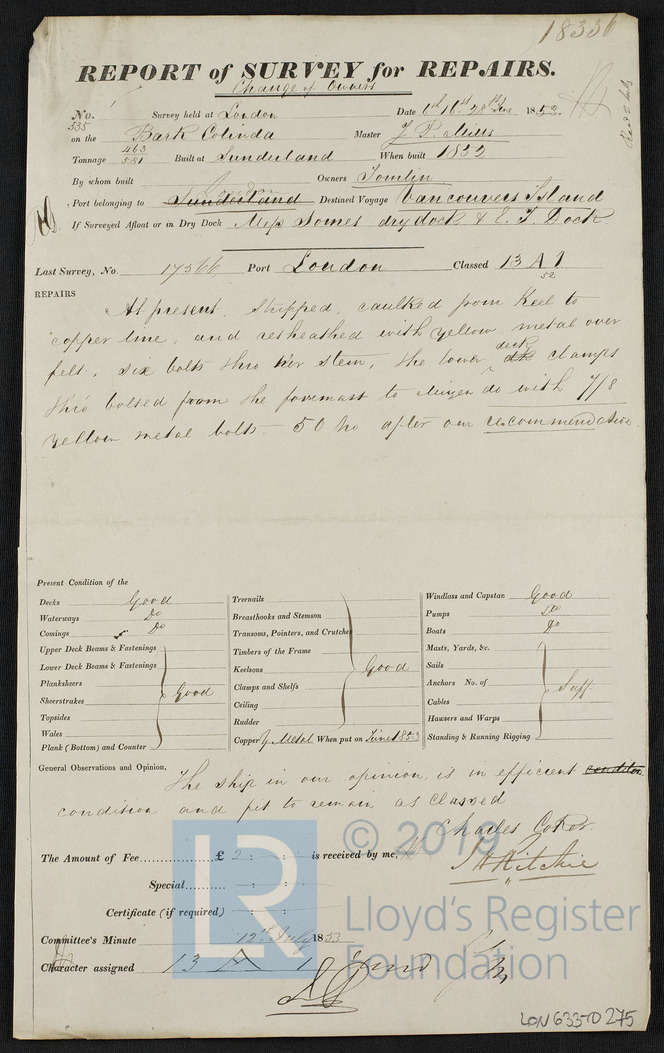 18336
REPORT of SURVEY for REPAIRS.
Change of Owners
No. 535 Survey held at London Date 6th 16th 28th June 1853
on the Bark Colinda Master J. P. Mills
Tonnage 463 581 Built at Sunderland When built 1852
By whom built Owners Tomlin
Port belonging to Sunderland London Destined Voyage Vancouvers Island
If Surveyed Afloat or in Dry Dock Messs Somes dry dock & E. I. Dock
Last Survey, No. 17566 Port London Classed 13 A 1
52
REPAIRS
At present, Stripped, caulked from Keel to
copper line, and resheathed with yellow metal over
felt, six bolts thro her stem, the lower deck clamps
thro bolted from the foremast to Mizen do with 7/8
yellow metal bolts - 50 no after our recommendation
Present Condition of the
Decks Good
Waterways Do
Comings Do
Upper Deck Beams & Fastenings
Lower Deck Beams & Fastenings
Planksheers
Sheerstrakes Good
Topsides
Wales
Plank (Bottom) and Counter
Treenails
Breasthooks and Stemson
Transoms, Pointers, and Crutches
Timbers of the Frame
Keelsons Good
Clamps and Shelfs
Ceiling
Rudder
Copper Y Metal When put on June 1853
Windlass and Capstan Good
Pumps Do
Boats Do
Masts, Yards, &c.
Sails
Anchors No. of Suff
Cables
Hawsers and Warps
Standing & Running Rigging
General Observations and Opinion, The ship in our opinion, is in efficient condition
condition and fit to remain as Classed
Charles Coker.
The Amount of Fee £ 2 : : is received by me,
J H Ritchie
Special : :
Certificate (if required) : :
Committee's Minute 12th July 1853
Character assigned 13 A 1
© 2019
LR
Lloyd's Register
Foundation
LON 633-0275